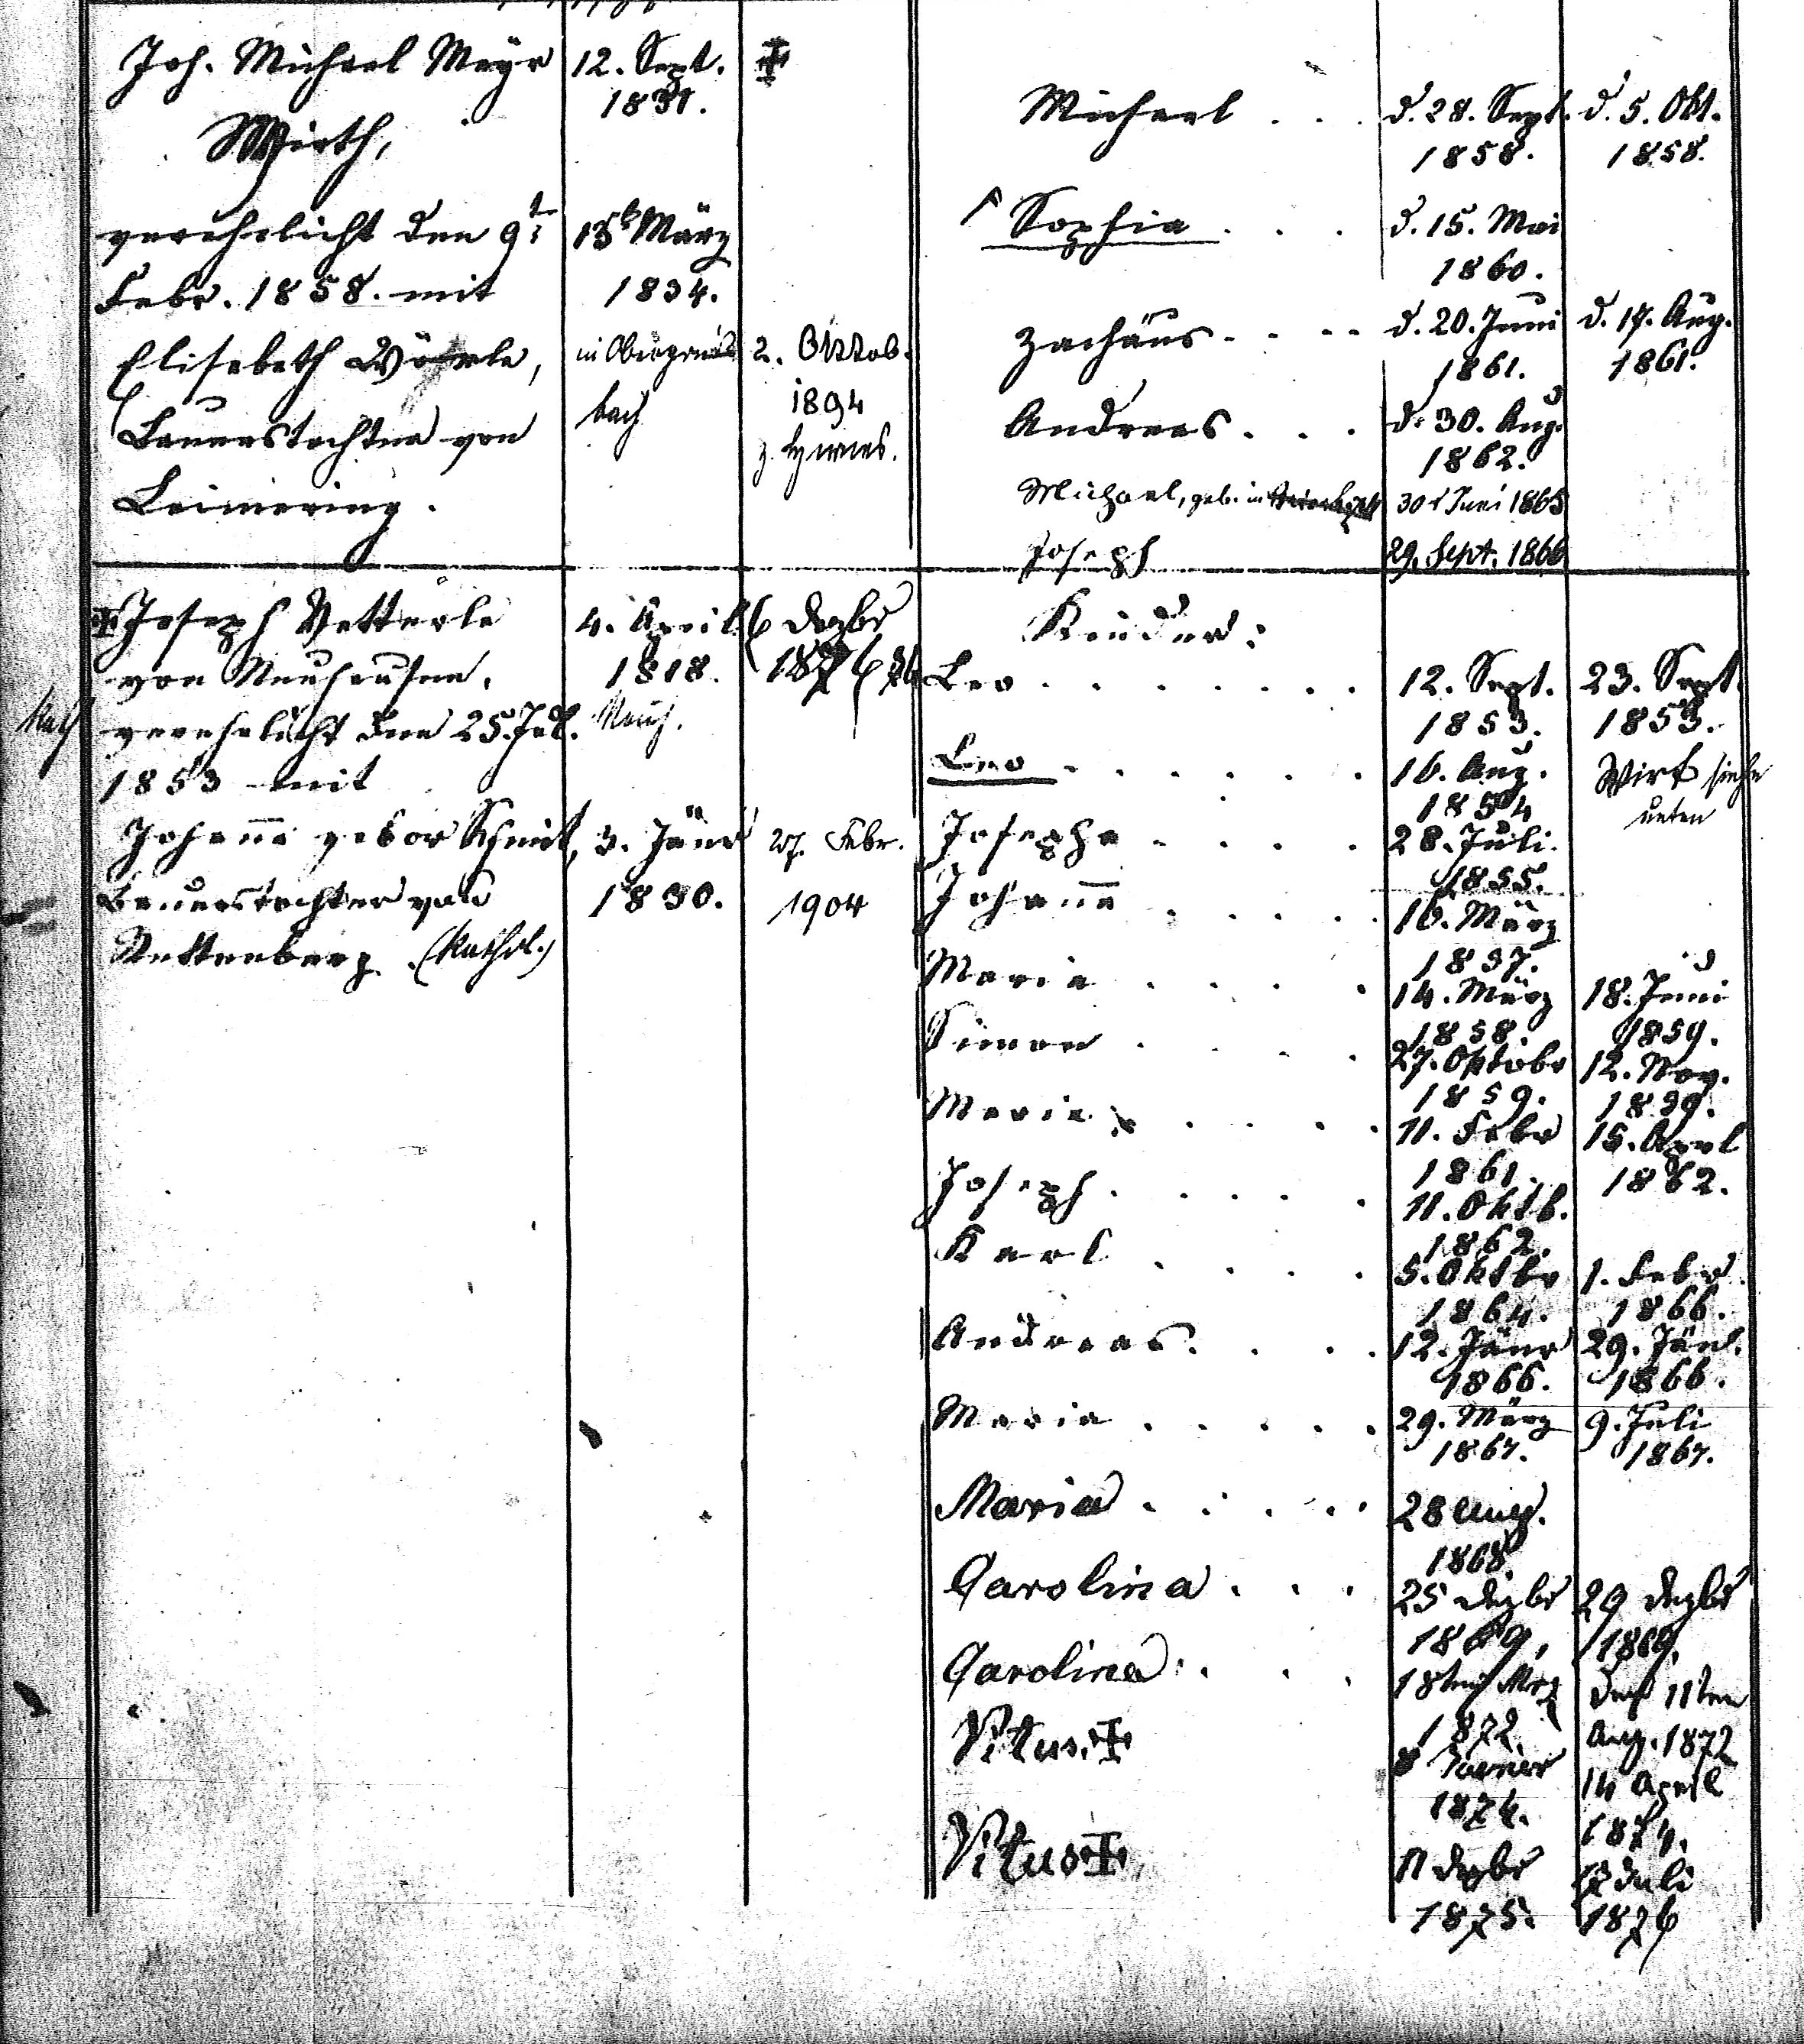 Joh. Michael Meyr
12. Sept.
1831.
Wirth,
verehelicht den 9t
Febr. 1858. mit
13t März
1834.
Elisabeth Wörle,
2. Oktob.
1894
bach
Bauerstochter von
Leimering.
Michael . . .
d. 28. Sept.
1858.
d. 5. Okt.
1858.
Sophia . . .
d. 15. Mai
1860.
Zachäus . . . .
d. 20. Juni
1861.
d. 17. Aug.
1861.
Andreas . . .
d. 30. Aug.
1862.
Michael, geb. in
30t Juni 1865
Joseph
29. Sept. 1866
Joseph Vetterle
von Neuhausen.
4. April
1818.
6 Dezbr
1876
Kath
verehelicht den 25. Jul.
1853 mit
Johanna gebor Schmid,
3. Jänr
1830.
27. Febr.
1904
Bauerstochter von
Rettenberg. (Kathol.)
Kinder:
Leo . . . . . . .
12. Sept.
1853.
23. Sept.
1853.
Leo . . . . . .
16. Aug.
1854
Wirt siehe
unten
Josepha . . . .
28. Juli.
1855.
Johanna . . . . .
16. März
1857.
Maria . . . .
14. März
1858.
18. Juni
1859.
Simon . . . .
27. Oktobr
1859.
12. Nov.
1859.
Maria . . . . .
11. Febr
1861.
15. Aprl
1862.
Joseph . . . . .
11. Oktb.
1862.
Karl . . . .
5. Oktbr
1864.
1. Febr
1866.
Andreas . . . .
12. Jänr
1866.
29. Jän.
1866.
Maria . . . . .
29. März
1867.
9. Juli
1867.
Maria . . . . .
28 Aug.
1868
Carolina . . .
25 Dezbr
1869,
29 Dezbr
1869.
Carolina . . .
18ten Mrz
1872.
den 11ten
Aug. 1872
Vitus.
8 Jaener
1874.
14 April
1874.
Vitus
11 Dezbr
1875.
Juli
1876